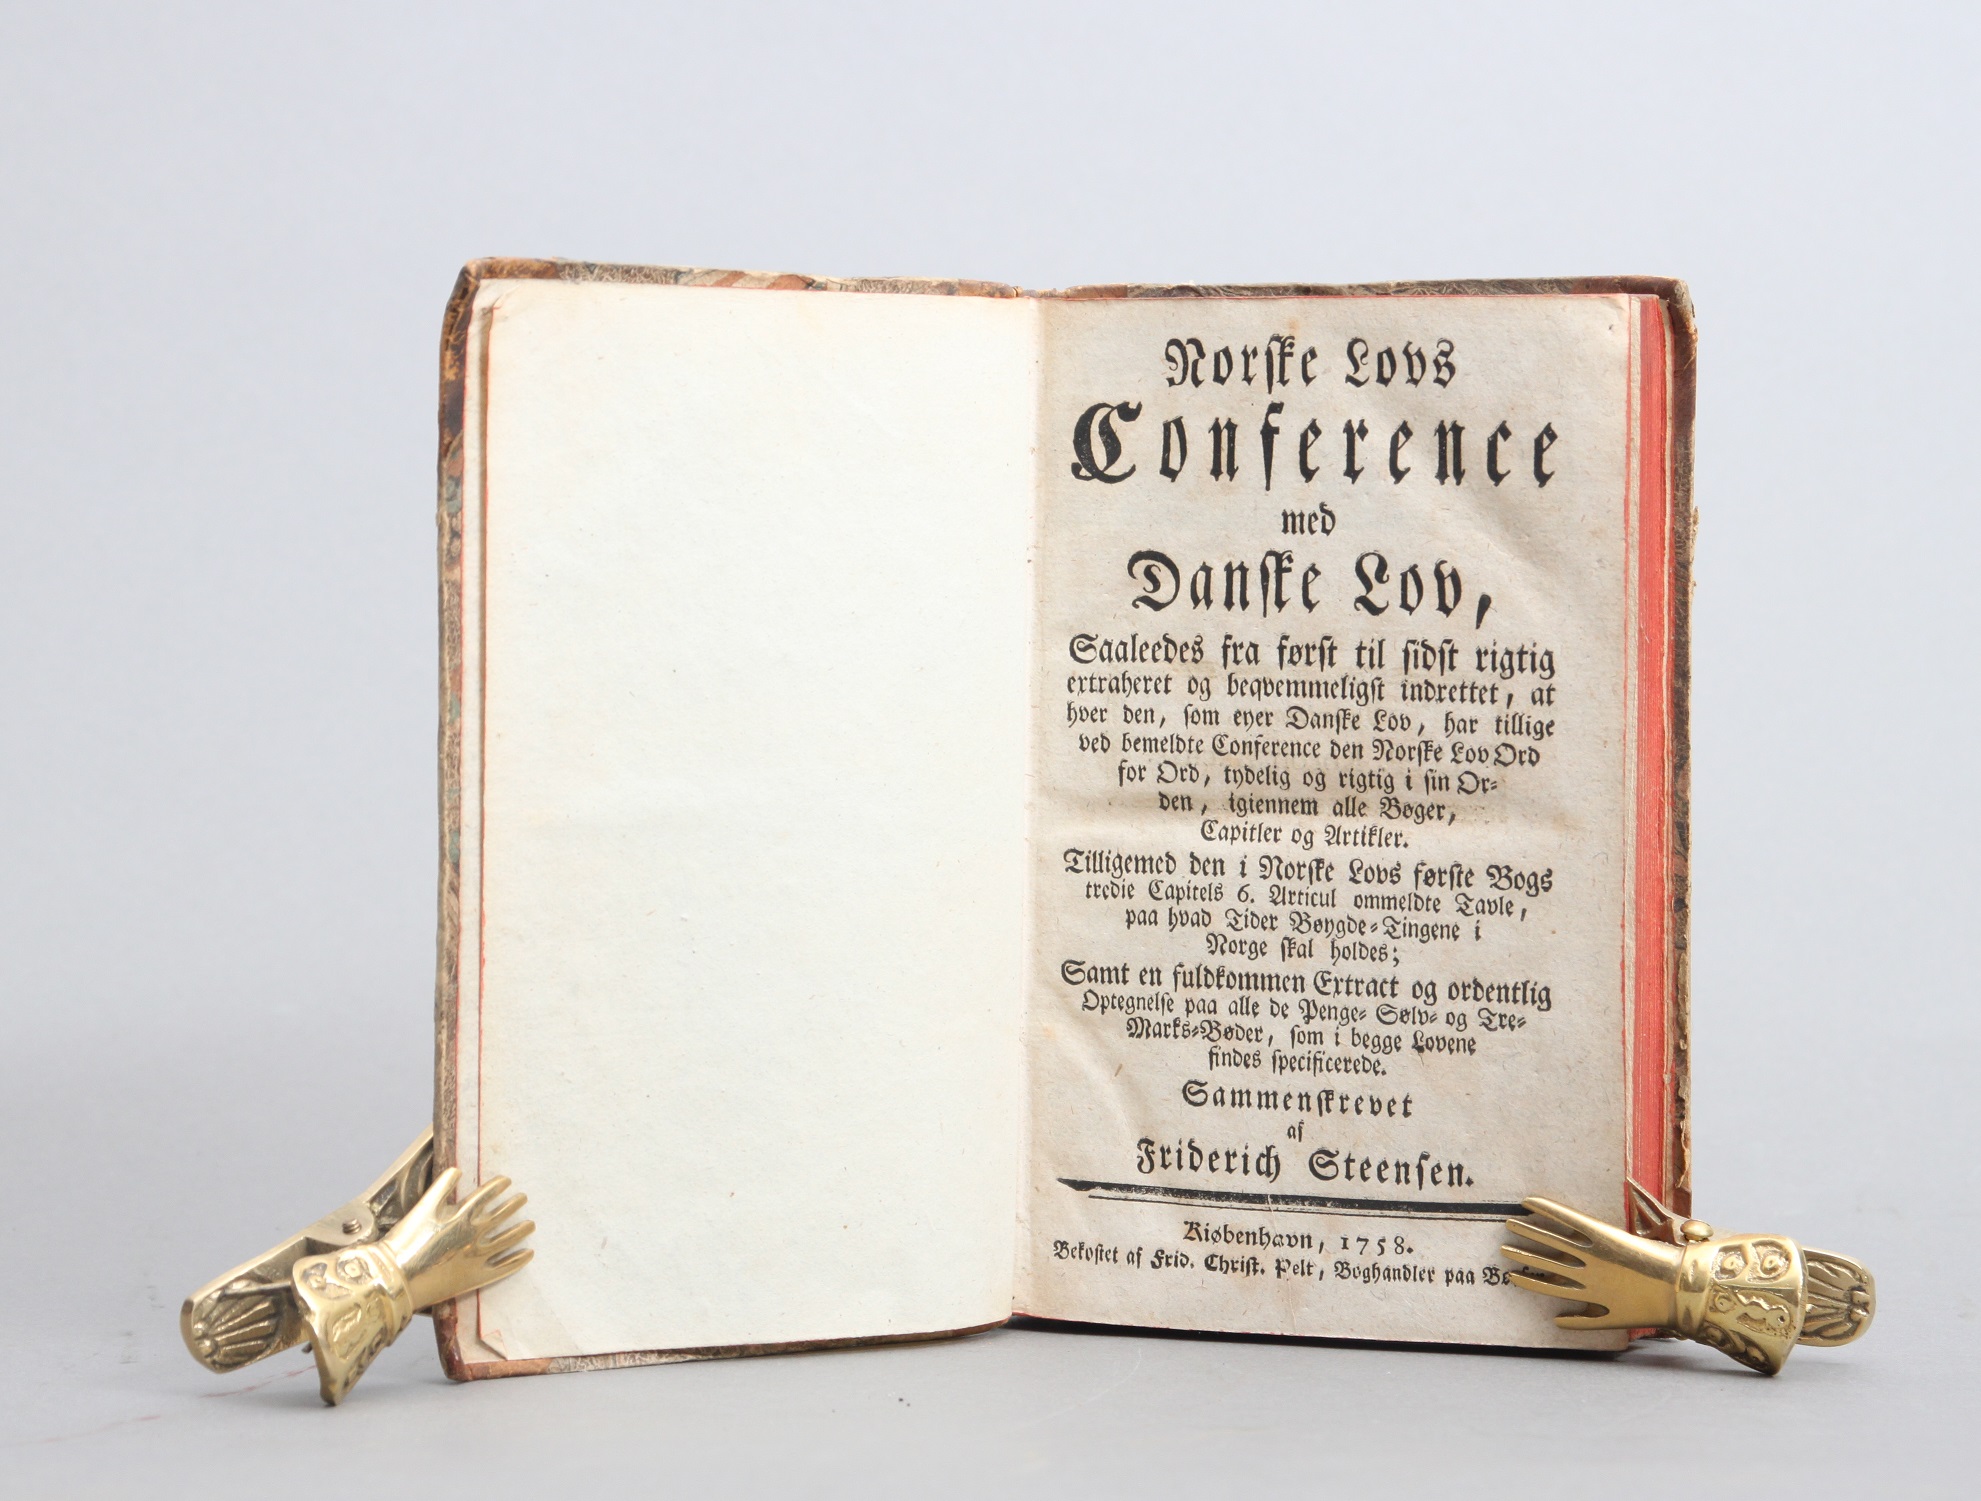 Norske Lovs
Conference
med
Danske Lov,
Saaleedes fra først til sidst rigtig
extraheret og beqvemmeligst indrettet, at
hver den, som eyer Danske Lov, har tillige
ved bemeldte Conference den Norske Lov Ord
for Ord, tydelig og rigtig i sin Or-
den, igiennem alle Bøger,
Capitler og Artikler.
Tilligemed den i Norske Lovs første Bogs
tredie Capitels 6. Articul ommeldte Tavle,
paa hvad Tider Bøygde-Tingene i
Norge skal holdes;
Samt en fuldkommen Extract og ordentlig
Optegnelse paa alle de Penge- Sølv- og Tre-
Marks-Bøder, som i begge Lovene
findes specificerede.
Sammenskrevet
af
Friderich Steensen.
Kiøbenhavn, 1758.
Bekostet af Frid. Christ. Pelt, Boghandler paa